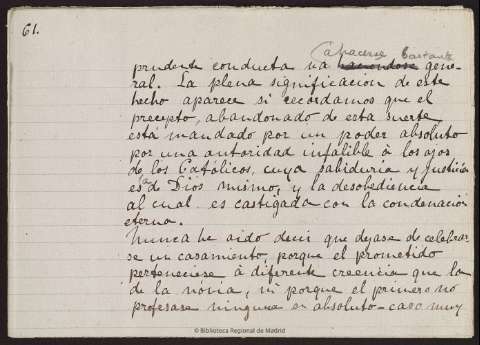 61.
á hacerse bastante
prudente conducta va haciendose gene-
ral. La plena significacion de este
hecho aparece si recordamos que el
precepto, abandonado de esta suerte
está mandado por un poder absoluto
por una autoridad infalible á los ojos
de los Católicos, cuya sabiduria y justicia
es la de Dios mismo, y la desobediencia
al cual es castigada con la condenación
eterna.
Nunca he oido decir que dejase de celebrar-
se un casamiento, porque el prometido
perteneciese á diferente creencia que la
de la nóvia, ni porque el primero no
profesase ninguna en absoluto-caso muy
© Biblioteca Regional de Madrid